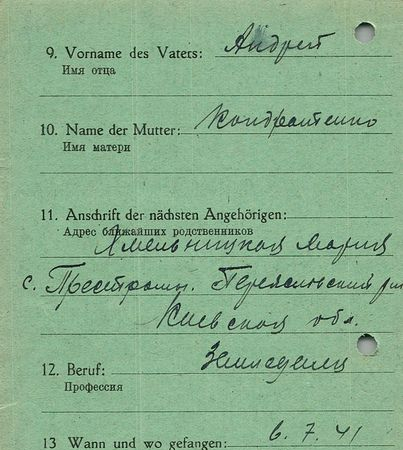 9. Vorname des Vaters: Андрей
Имя отца
10. Name der Mutter: Кондратенко
Имя матери
11. Anschrift der nächsten Angehörigen:
Адрес ближайших родственников
Хмельницкая Мария
с. Переяславский
Киевская обл.
12. Beruf: Земледелец
Профессия
13 Wann und wo gefangen: 6. 7. 41